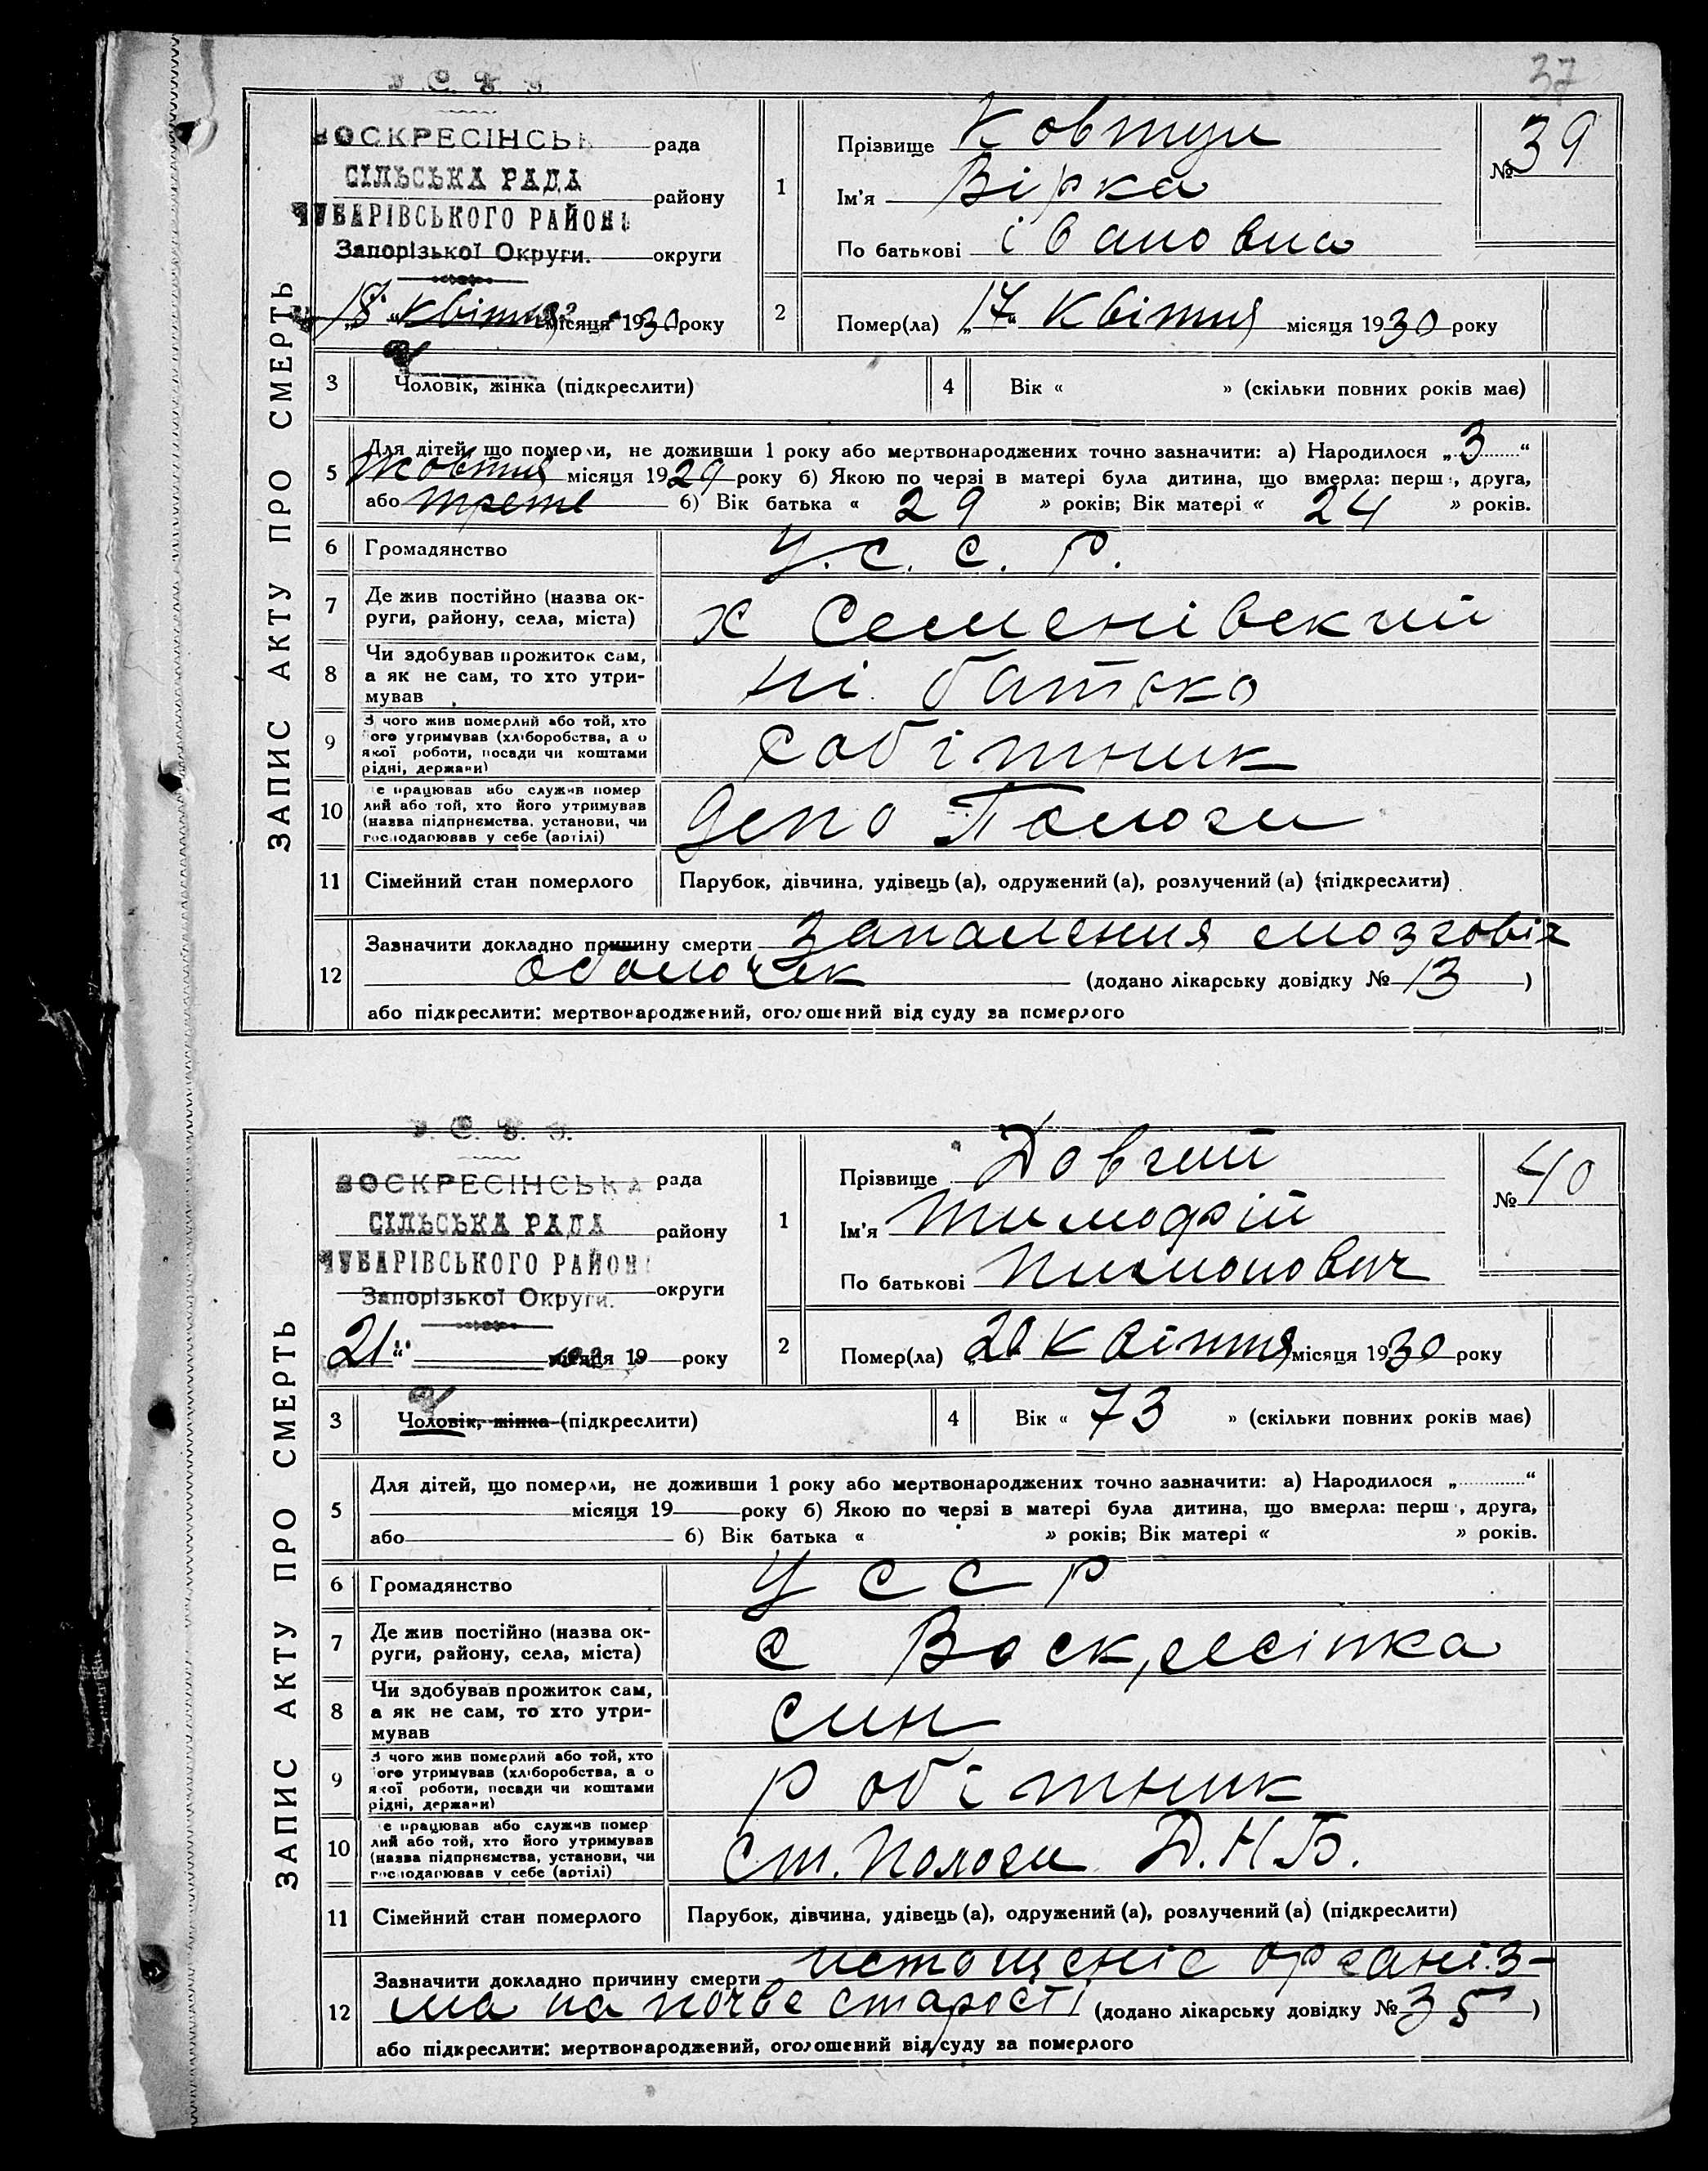 37
У. С. Р. Р.
ВОСКРЕСІНСЬК рада
СІЛЬСЬКА РАДА району
ЧУБАРІВСЬКОГО РАЙОНУ
Запорізької Округи. округи
„18“ квітня місяця 1930 року
ЗАПИС АКТУ ПРО СМЕРТЬ
1 Прізвище Ковтун
Ім'я Вірка
По батькові івановна
№ 39
2 Помер(ла) „17“ Квітня місяця 1930 року
3 Чоловік, жінка (підкреслити)
4 Вік « » (скільки повних років має)
5 Для дітей, що померли, не доживши 1 року або мертвонароджених точно зазначити: а) Народилося „3“
жовтня місяця 1929 року б) Якою по черзі в матері була дитина, що вмерла: перша, друга,
або трете б) Вік батька « 29 » років; Вік матері « 24 » років.
6 Громадянство У. С. С. Р.
7 Де жив постійно (назва ок-
руги, району, села, міста) х Семенівский
8 Чи здобував прожиток сам,
а як не сам, то хто утри-
мував ні батько
9 З чого жив померлий або той, хто
його утримував (хліборобства, а о
якої роботи, посади чи коштами
рідні, держави) робітник
10 е працював або служив помер
лий або той, хто його утримував
(назва підприємства, установи, чи
господарював у себе (артілі) депо Пологи
11 Сімейний стан померлого Парубок, дівчина, удівець (а), одружений (а), розлучений (а) (підкреслити)
12 Зазначити докладно причину смерти Запалення мозговіх
оболочек (додано лікарську довідку № 13 )
або підкреслити: мертвонароджений, оголошений від суду за померлого
У. С. Р. Р.
ВОСКРЕСІНСЬКА рада
СІЛЬСЬКА РАДА району
ЧУБАРІВСЬКОГО РАЙОНУ
Запорізької Округи. округи
„21“ місяця 19 року
ЗАПИС АКТУ ПРО СМЕРТЬ
1 Прізвище Довгий
Ім'я Тимофій
По батькові Пимонович
№ 40
2 Помер(ла) „20“ Квітня місяця 1930 року
3 Чоловік, жінка (підкреслити)
4 Вік « 73 » (скільки повних років має)
5 Для дітей, що померли, не доживши 1 року або мертвонароджених точно зазначити: а) Народилося „ “
місяця 19 року б) Якою по черзі в матері була дитина, що вмерла: перша, друга,
або б) Вік батька « » років; Вік матері « » років.
6 Громадянство У С С Р
7 Де жив постійно (назва ок-
руги, району, села, міста) с Воскресінка
8 Чи здобував прожиток сам,
а як не сам, то хто утри-
мував син
9 З чого жив померлий або той, хто
його утримував (хліборобства, а о
якої роботи, посади чи коштами
рідні, держави) робітник
10 е працював або служив помер
лий або той, хто його утримував
(назва підприємства, установи, чи
господарював у себе (артілі) Ст. Пологи Д.Н.Б.
11 Сімейний стан померлого Парубок, дівчина, удівець (а), одружений (а), розлучений (а) (підкреслити)
12 Зазначити докладно причину смерти истощеніе організ-
ма на почве старості (додано лікарську довідку № 35 )
або підкреслити: мертвонароджений, оголошений від суду за померлого